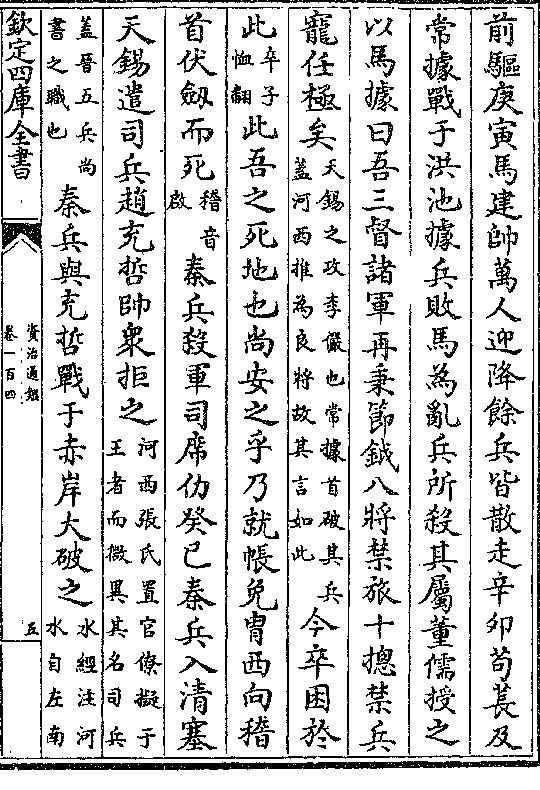 前驅庚寅馬建帥萬人迎降餘兵皆散走辛卯苟萇及
常據戰于洪池據兵敗馬為亂兵所殺其屬董儒授之
以馬據曰吾三督諸軍再秉節鉞八將禁旅十摠禁兵
寵任極矣
天錫之攻李儼也常據首破其兵
蓋河西推為良將故其言如此
今卒困於
此
卒子
恤翻
此吾之死地也尚安之乎乃就帳免胄西向稽
首伏劒而死
稽音
啟
秦兵殺軍司席仂癸巳秦兵入清塞
天錫遣司兵趙充哲帥衆拒之
河西張氏置官僚擬于
王者而微異其名司兵
蓋晉五兵尚
書之職也
秦兵與充哲戰于赤岸大破之
水經注河
水自左南
欽定四庫全書
資治通鑑
卷一百四
五